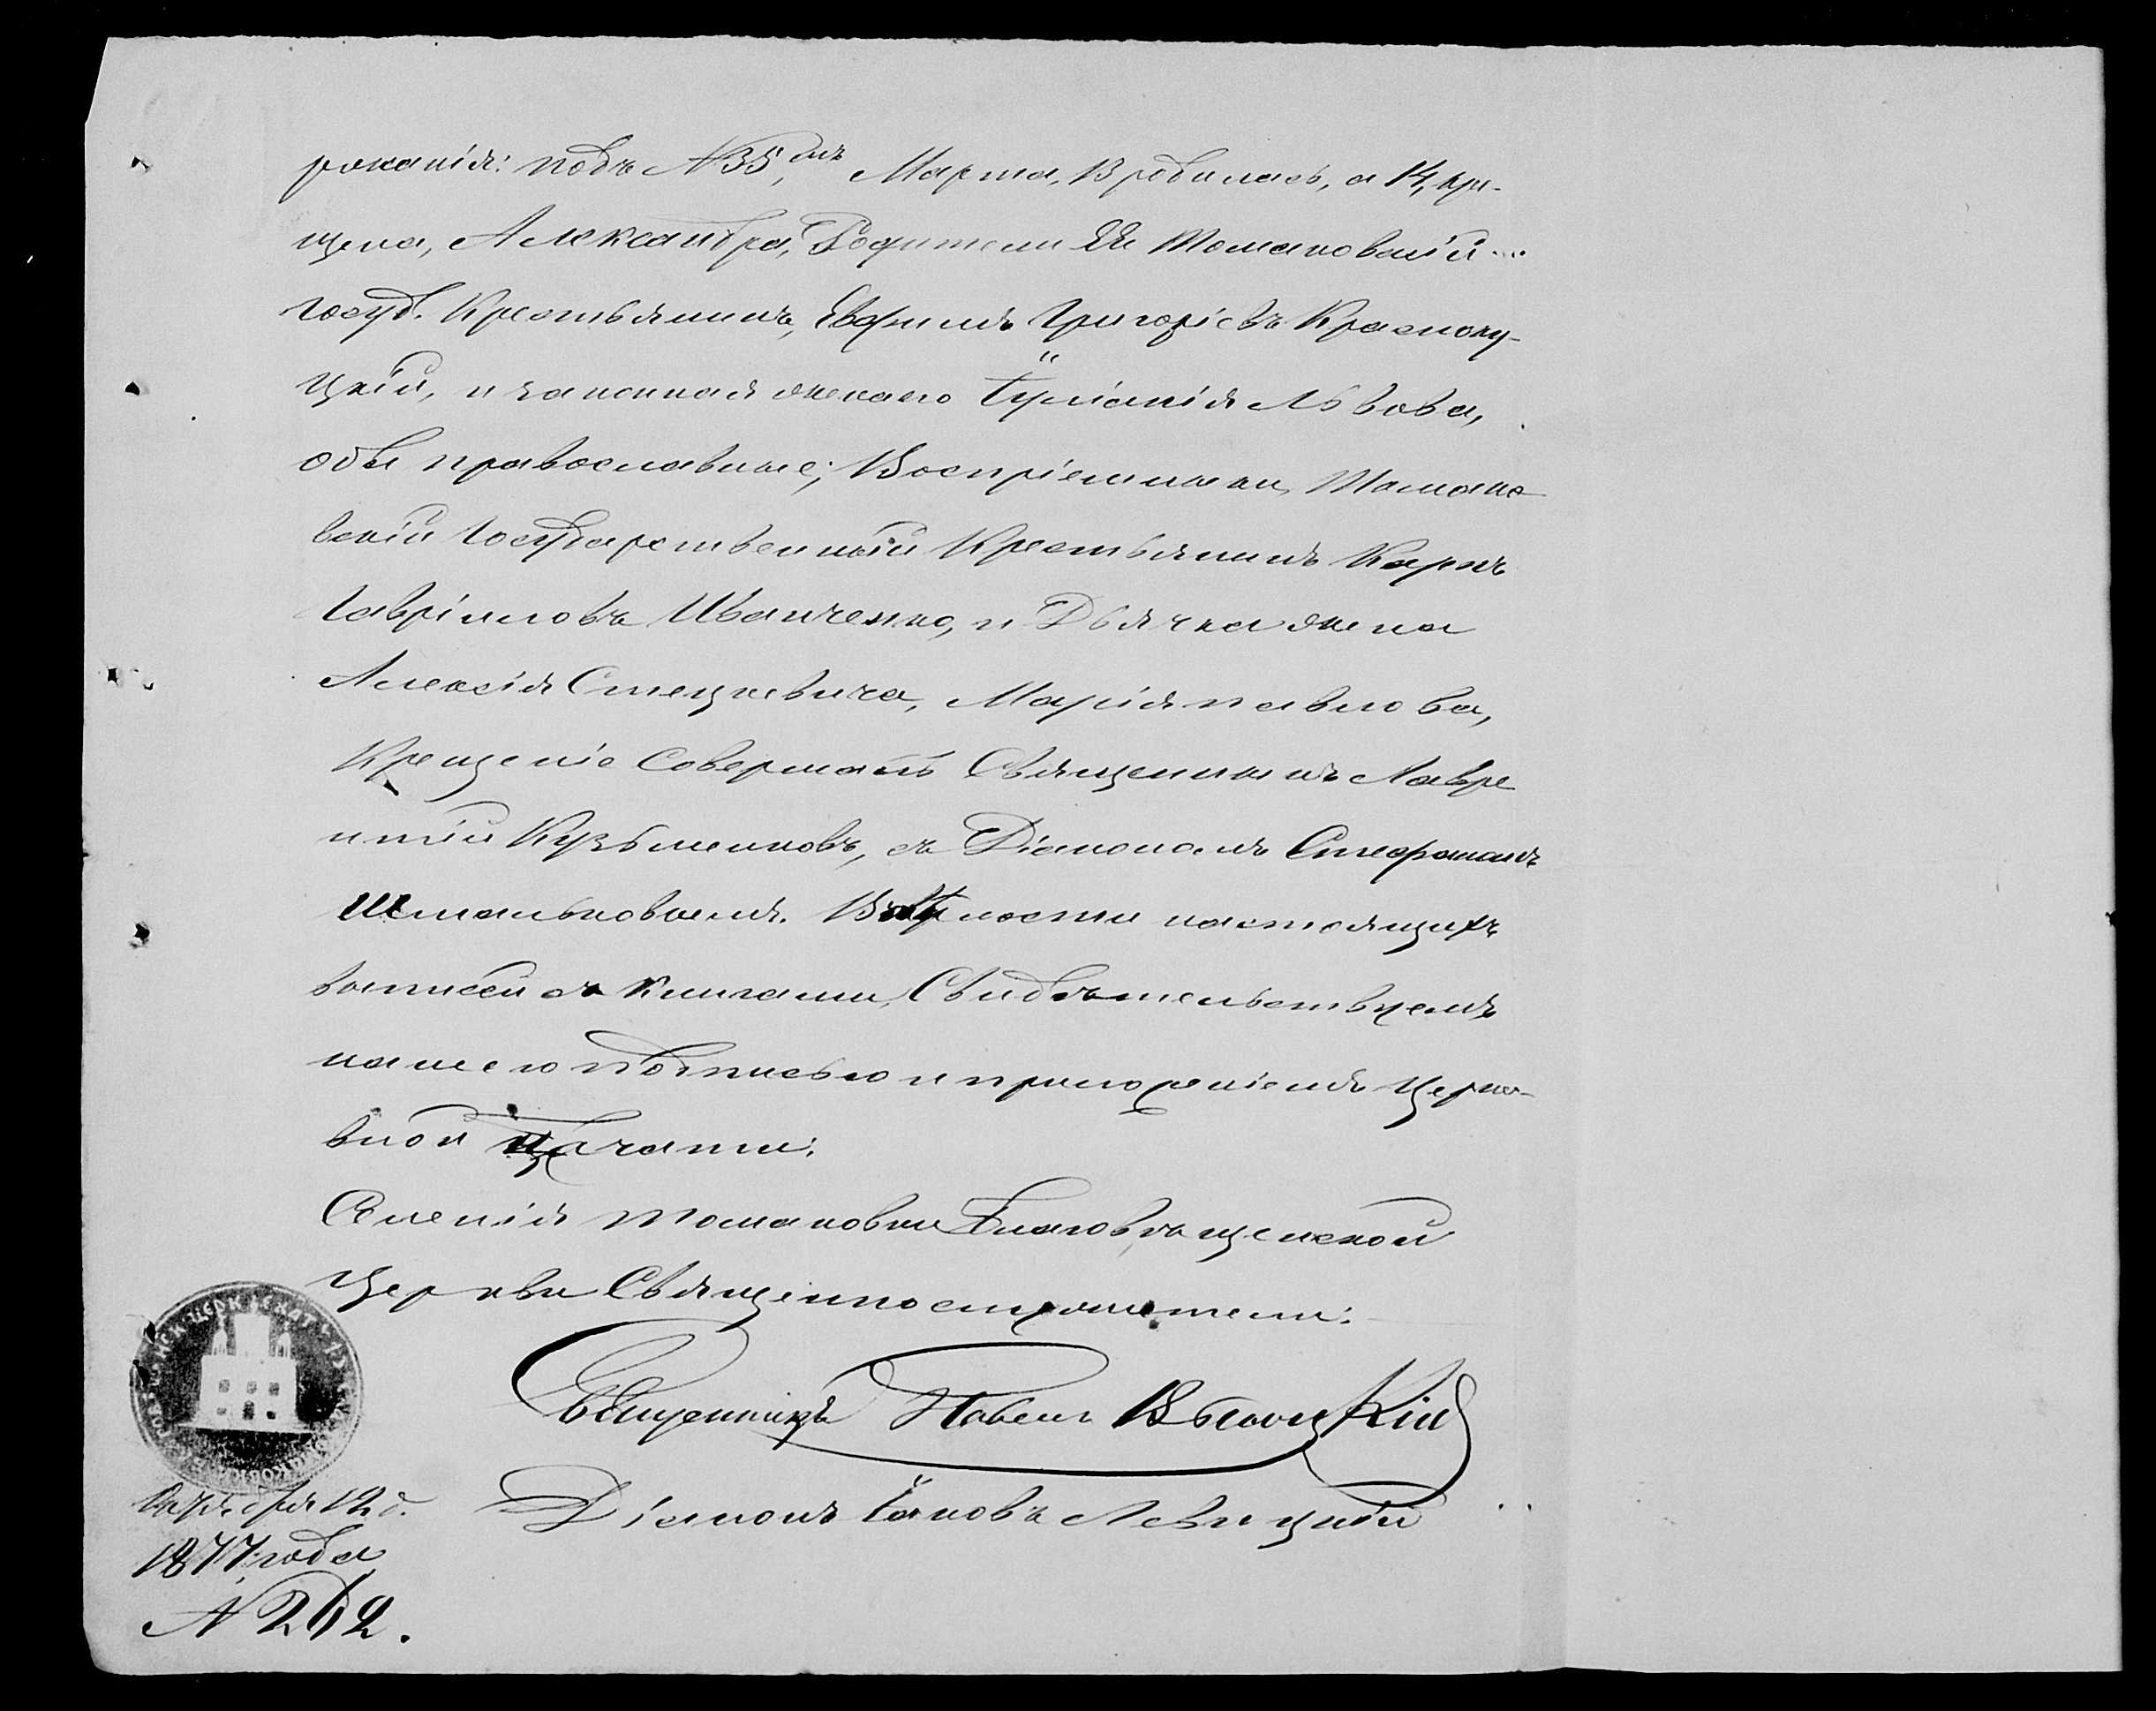 рожанія: подъ №35,ымъ Марта, 13 родилась, а 14, кре-
щена, Александра, Родители Ея Томаковскій
госуд. Крестьянинъ, Ефимъ Григоріевъ Красноку-
цкій, и законная жена его Іуліанія Львова,
обѣ православные; Воспріемники, Томако-
вскій Государственный Крестьянинъ Карпъ
Гавріиловъ Иванченко, и Дьячка жена
Алексія Стецкевича, Марія Павлова,
Крещеніе Совершалъ Священникъ Лавре
нтій Кузьменковъ, съ Діакономъ Стефаномъ
Шпаньковымъ. Вѣрности настоящихъ
выписей съ Книгами, Свидѣтельствуемъ
нашею подписью и приложеніемъ Церко-
вной печати.
Селенія Томаковки Благовѣщенской
Церкви Священнослужители:
Священникъ Павелъ Высоцкій
Діаконъ Іаковъ Левицкій
12 д.
1877, года
№ 262.